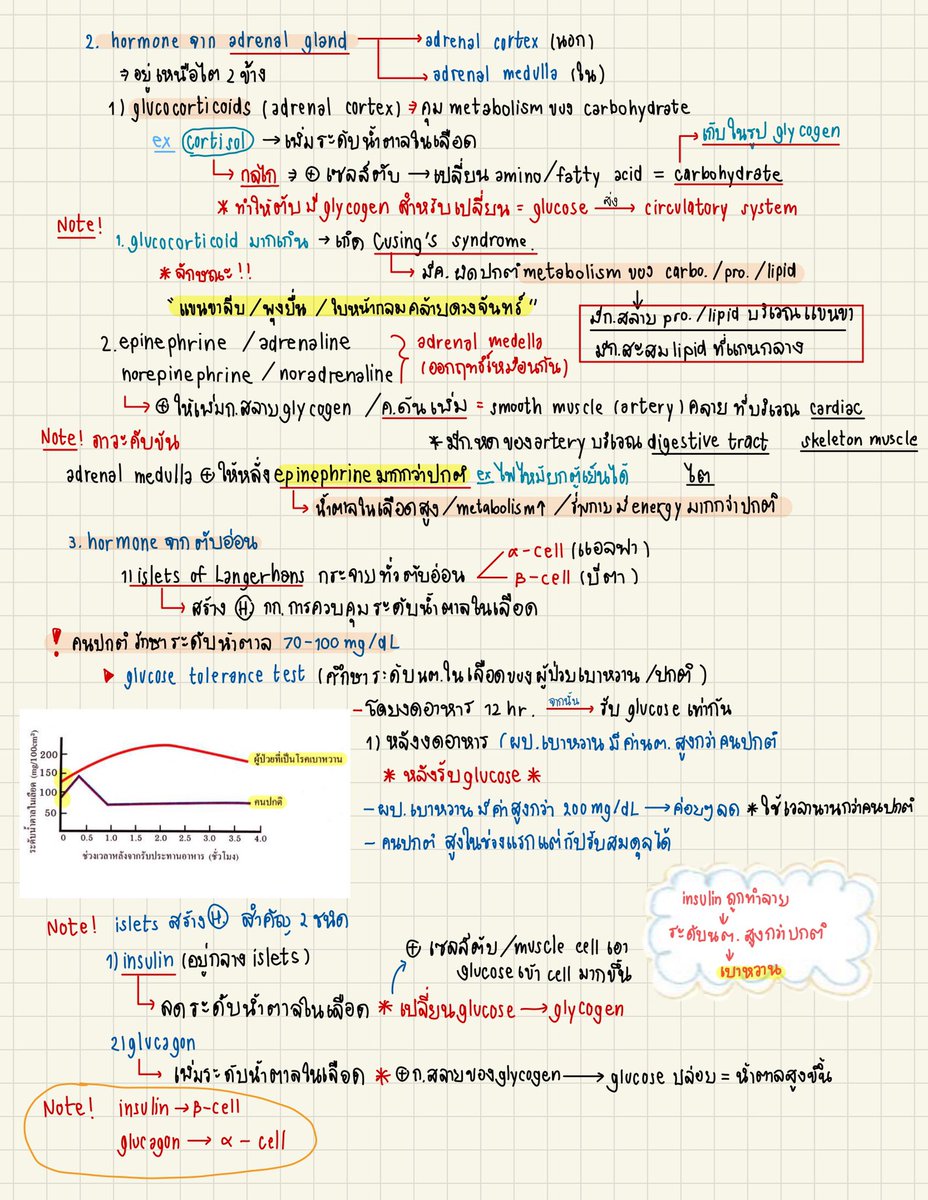 2. hormone จาก adrenal gland → adrenal cortex (นอก)
⇒ อยู่เหนือไต 2 ข้าง → adrenal medulla (ใน)
1) glucocorticoids (adrenal cortex) ⇒ คุม metabolism ของ carbohydrate
ex cortisol → เพิ่มระดับน้ำตาลในเลือด เก็บในรูป glycogen
กลไก ⇒ ⊕ เซลล์ตับ → เปลี่ยน amino/fatty acid = carbohydrate
* ทำให้ตับมี glycogen สำหรับเปลี่ยน = glucose ส่ง→ circulatory system
Note!
1. glucocorticoid มากเกิน → เกิด Cusing's syndrome.
* ลักษณะ!! มีค. ผิดปกติ metabolism ของ carbo. / pro. / lipid
"แขนขาลีบ / พุงยื่น / ใบหน้ากลมคล้ายดวงจันทร์"
มีก.สลาย pro. / lipid บริเวณแขนขา
มีก.สะสม lipid ที่แกนกลาง
2. epinephrine / adrenaline adrenal medella
norepinephrine / noradrenaline (ออกฤทธิ์เหมือนกัน)
⊕ ให้เพิ่มก.สลาย glycogen / ค.ดันเพิ่ม = smooth muscle (artery) คลาย ที่บริเวณ cardiac
Note! ภาวะคับขัน * มีก.หดของ artery บริเวณ digestive tract skeleton muscle
adrenal medulla ⊕ ให้หลั่ง epinephrine มากกว่าปกติ ex ไฟไหม้ยกตู้เย็นได้ ไต
น้ำตาลในเลือดสูง / metabolism↑ / ร่างกายมี energy มากกว่าปกติ
3. hormone จากตับอ่อน
α-cell (แอลฟา)
1) islets of Langerhans กระจายทั่วตับอ่อน β-cell (บีตา)
สร้าง H. กก. การควบคุมระดับน้ำตาลในเลือด
! คนปกติ รักษาระดับน้ำตาล 70-100 mg/dL
glucose tolerance test (ศึกษาระดับนต.ในเลือดของผู้ป่วยเบาหวาน/ปกติ)
- โดยงดอาหาร 12 hr. จากนั้น→ รับ glucose เท่ากัน
1) หลังงดอาหาร (ผป.เบาหวาน มีค่านต. สูงกว่าคนปกติ
* หลังรับ glucose *
- ผป. เบาหวาน มีค่าสูงกว่า 200 mg/dL → ค่อยๆลด * ใช้เวลานานกว่าคนปกติ
- คนปกติ สูงในช่วงแรกแต่ก็ปรับสมดุลได้
ระดับน้ำตาลในเลือด (mg/100cm³)
200
150
100
50
ผู้ป่วยที่เป็นโรคเบาหวาน
คนปกติ
0 0.5 1.0 1.5 2.0 2.5 3.0 3.5 4.0
ช่วงเวลาหลังจากรับประทานอาหาร (ชั่วโมง)
insulin ถูกทำลาย
ระดับนต. สูงกว่าปกติ
เบาหวาน
Note! islets สร้าง H. สำคัญ 2 ชนิด
1) insulin (อยู่กลาง islets) ⊕ เซลล์ตับ / muscle cell เอา
glucose เข้า cell มากขึ้น
ลดระดับน้ำตาลในเลือด * เปลี่ยน glucose → glycogen
2) glucagon
เพิ่มระดับน้ำตาลในเลือด * ⊕ ก.สลายของ glycogen → glucose ปล่อย = น้ำตาลสูงขึ้น
Note! insulin → β-cell
glucagon → α-cell